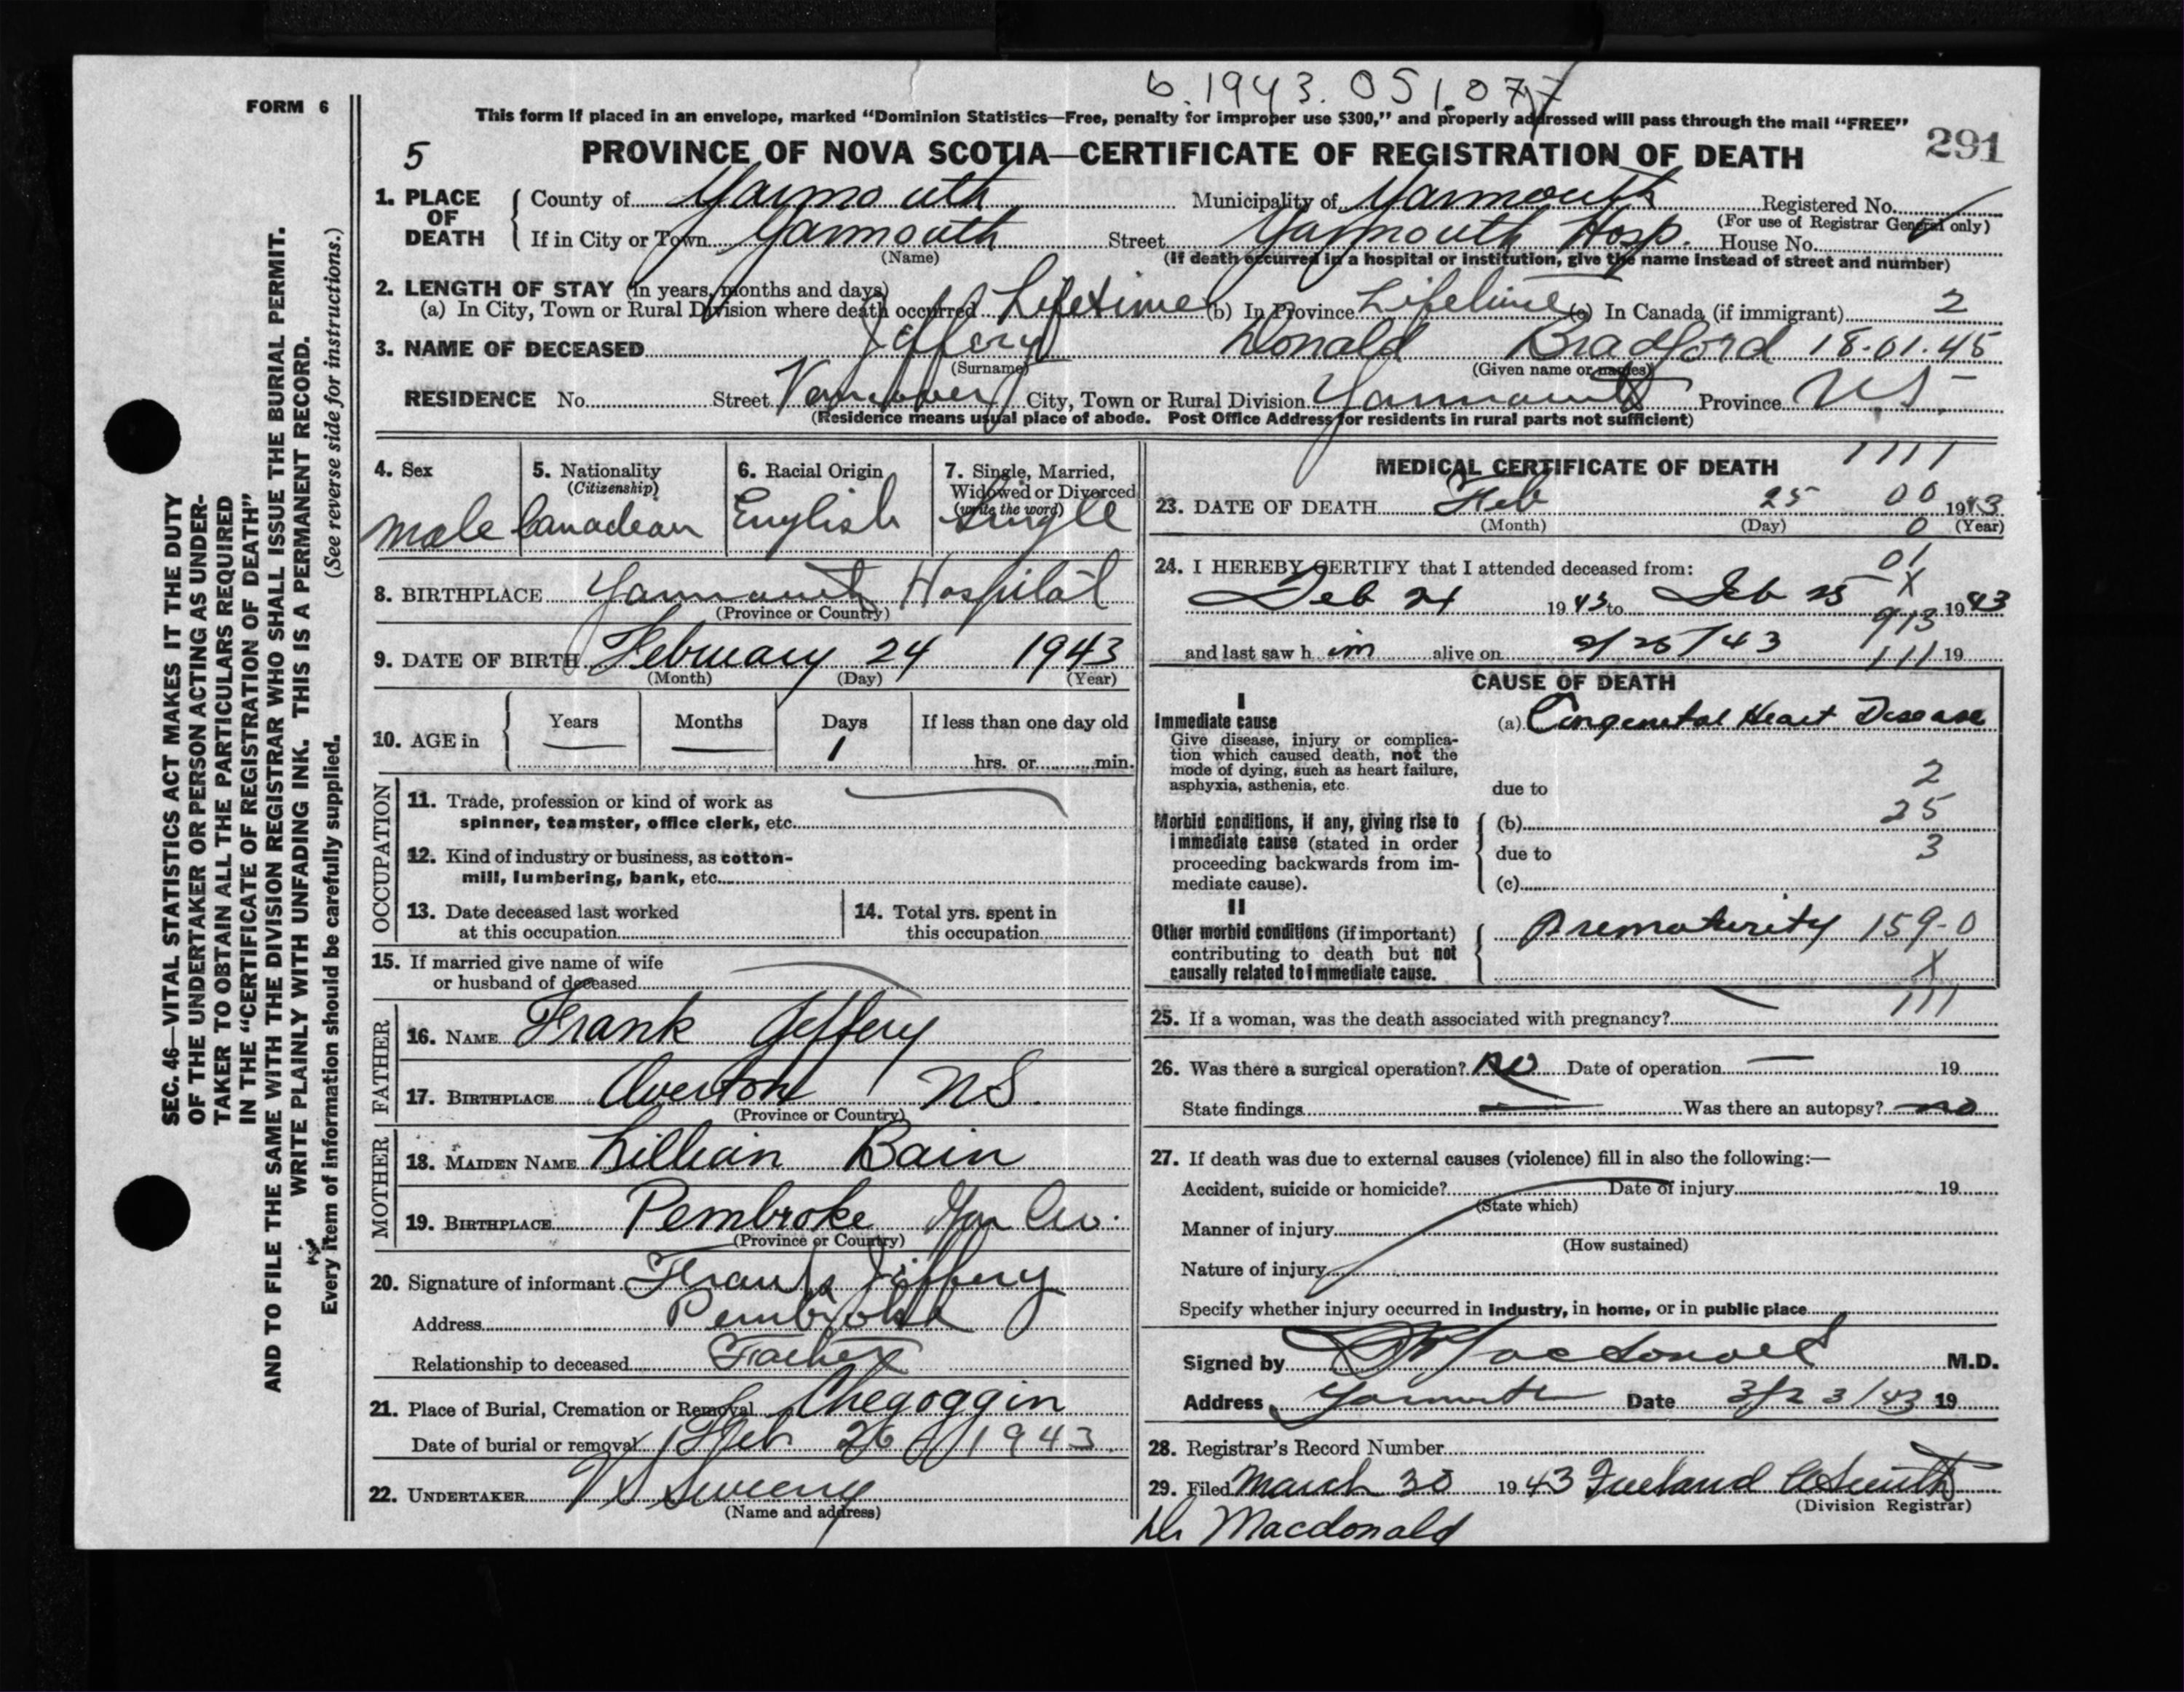 b. 1943. 051.077
FORM 6
This form if placed in an envelope, marked "Dominion Statistics—Free, penalty for improper use $300," and properly addressed will pass through the mail "FREE"
5 PROVINCE OF NOVA SCOTIA—CERTIFICATE OF REGISTRATION OF DEATH 291
1. PLACE OF DEATH
County of Yarmouth Municipality of Yarmouth Registered No.
(For use of Registrar General only)
If in City or Town Yarmouth Street Yarmouth Hosp. House No.
(Name) (If death occurred in a hospital or institution, give the name instead of street and number)
2. LENGTH OF STAY (in years, months and days)
(a) In City, Town or Rural Division where death occurred Lifetime (b) In Province Lifetime (c) In Canada (if immigrant) 2
3. NAME OF DECEASED Jeffery Donald Bradford 18-01.45
(Surname) (Given name or names)
RESIDENCE No. Street City, Town or Rural Division Yarmouth Province N.S.
(Residence means usual place of abode. Post Office Address for residents in rural parts not sufficient)
4. Sex 5. Nationality 6. Racial Origin 7. Single, Married,
(Citizenship) Widowed or Divorced
(write the word)
male Canadian English Single
8. BIRTHPLACE Yarmouth Hospital
(Province or Country)
9. DATE OF BIRTH February 24 1943
(Month) (Day) (Year)
10. AGE in Years Months Days If less than one day old
1 hrs. or min.
OCCUPATION
11. Trade, profession or kind of work as
spinner, teamster, office clerk, etc.
12. Kind of industry or business, as cotton-
mill, lumbering, bank, etc.
13. Date deceased last worked 14. Total yrs. spent in
at this occupation this occupation
15. If married give name of wife
or husband of deceased
FATHER
16. NAME Frank Jeffery
17. BIRTHPLACE Overton NS.
(Province or Country)
MOTHER
18. MAIDEN NAME Lillian Bain
19. BIRTHPLACE Pembroke Yar Co.
(Province or Country)
20. Signature of informant Frank Jeffery
Address Pembroke
Relationship to deceased Father
21. Place of Burial, Cremation or Removal Chegoggin
Date of burial or removal Feb 26 1943
22. UNDERTAKER V S Sweeny
(Name and address)
MEDICAL CERTIFICATE OF DEATH 1111
23. DATE OF DEATH Feb 25 00 1943
(Month) (Day) 0 (Year)
24. I HEREBY CERTIFY that I attended deceased from: 01
Feb 24 1943 to Feb 25 X 1943
913
and last saw h im alive on 2/25/43 111 19
CAUSE OF DEATH
I
Immediate cause (a) Congenital Heart Disease
Give disease, injury or complica-
tion which caused death, not the
mode of dying, such as heart failure,
asphyxia, asthenia, etc.
due to 2
Morbid conditions, if any, giving rise to
immediate cause (stated in order
proceeding backwards from im-
mediate cause).
(b) 25
due to 3
(c)
II
Other morbid conditions (if important)
contributing to death but not
causally related to immediate cause.
Prematurity 159-0
X
111
25. If a woman, was the death associated with pregnancy?
26. Was there a surgical operation? No Date of operation 19
State findings Was there an autopsy? no
27. If death was due to external causes (violence) fill in also the following:—
Accident, suicide or homicide? Date of injury 19
(State which)
Manner of injury
(How sustained)
Nature of injury
Specify whether injury occurred in industry, in home, or in public place
Signed by Macdonald M.D.
Address Yarmouth Date 3/23/43 19
28. Registrar's Record Number
29. Filed March 30 1943 Smith
(Division Registrar)
Dr Macdonald
SEC. 46—VITAL STATISTICS ACT MAKES IT THE DUTY
OF THE UNDERTAKER OR PERSON ACTING AS UNDER-
TAKER TO OBTAIN ALL THE PARTICULARS REQUIRED
IN THE "CERTIFICATE OF REGISTRATION OF DEATH"
AND TO FILE THE SAME WITH THE DIVISION REGISTRAR WHO SHALL ISSUE THE BURIAL PERMIT.
WRITE PLAINLY WITH UNFADING INK. THIS IS A PERMANENT RECORD.
Every item of information should be carefully supplied. (See reverse side for instructions.)